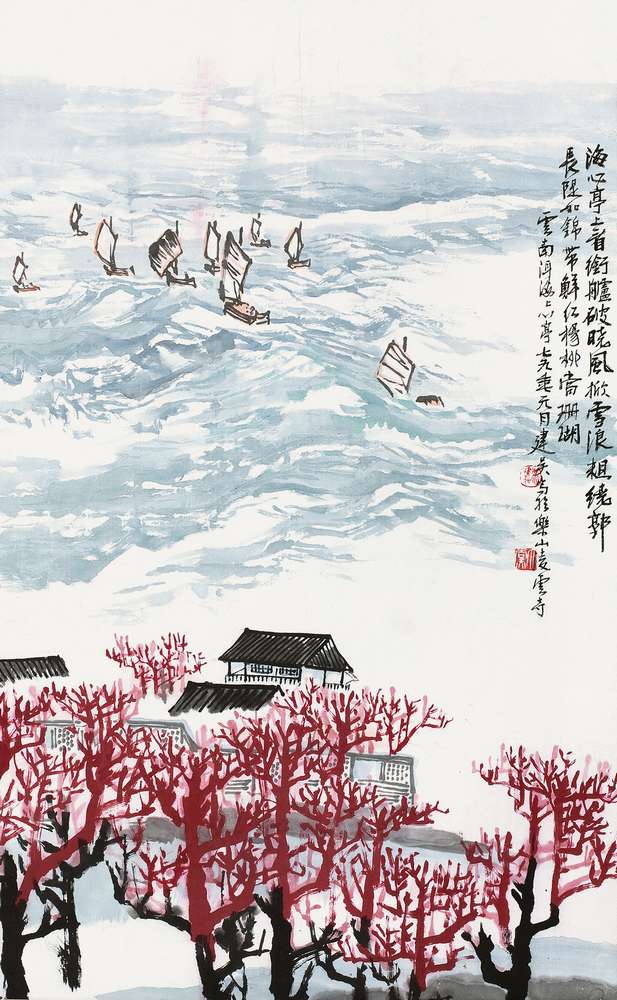 海心亭上看銜艫破曉風掀雪浪粗繞郭
長堤如錦帶鮮紅楊桃當珊瑚
雲南洱海上心亭七九年元月建吳寫於樂山凌雲寺